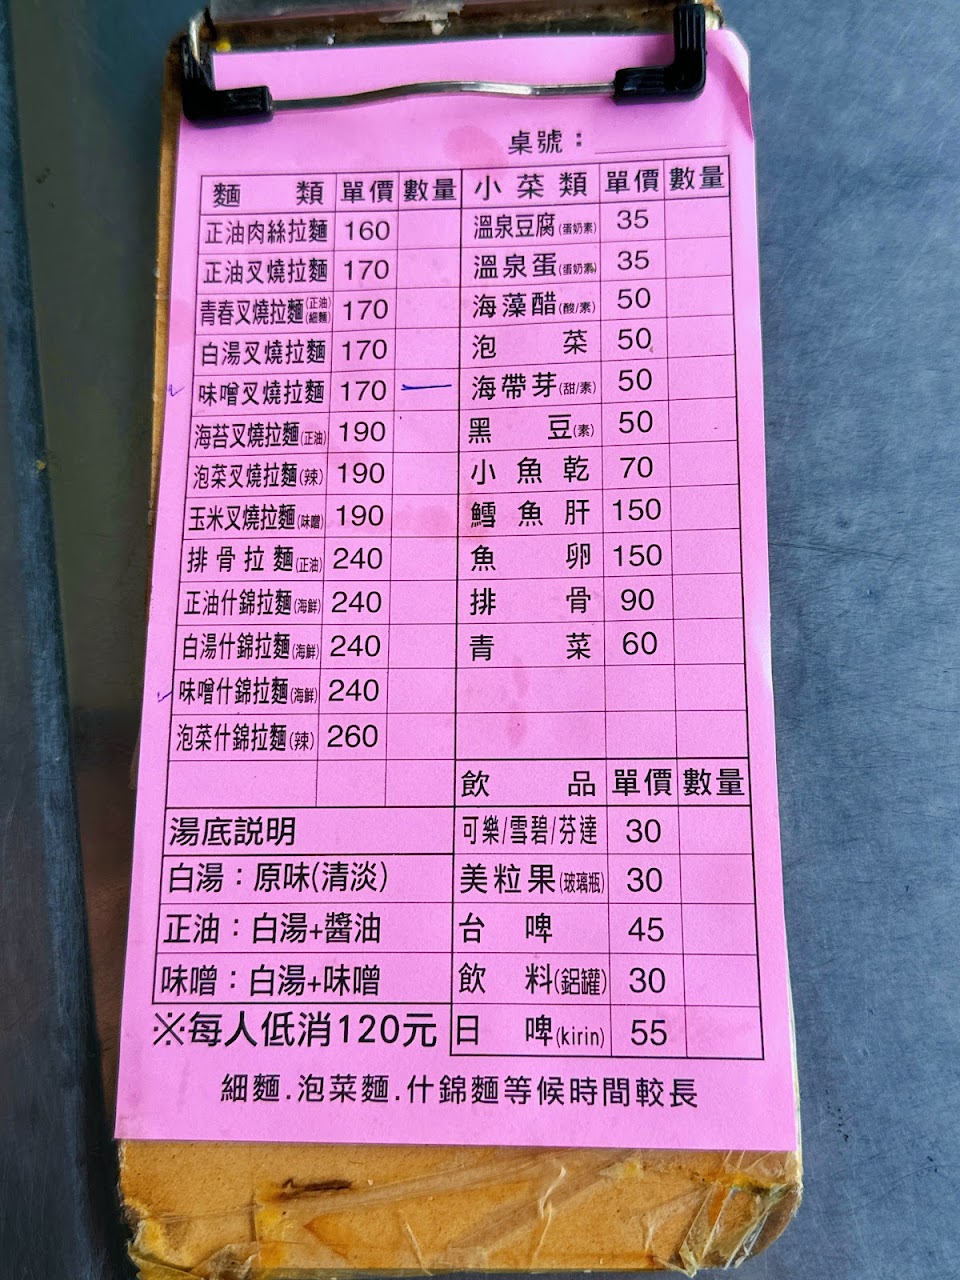 桌號：
麵類 單價 數量
正油肉絲拉麵 160
正油叉燒拉麵 170
青春叉燒拉麵(正油細麵) 170
白湯叉燒拉麵 170
味噌叉燒拉麵 170
海苔叉燒拉麵(正油) 190
泡菜叉燒拉麵(辣) 190
玉米叉燒拉麵(味噌) 190
排骨拉麵(正油) 240
正油什錦拉麵(海鮮) 240
白湯什錦拉麵(海鮮) 240
味噌什錦拉麵(海鮮) 240
泡菜什錦拉麵(辣) 260
湯底說明
白湯：原味(清淡)
正油：白湯+醬油
味噌：白湯+味噌
※每人低消120元
小菜類 單價 數量
溫泉豆腐(蛋奶素) 35
溫泉蛋(蛋奶素) 35
海藻醋(酸/素) 50
泡菜 50
海帶芽(甜/素) 50
黑豆(素) 50
小魚乾 70
鱈魚肝 150
魚卵 150
排骨 90
青菜 60
飲品 單價 數量
可樂/雪碧/芬達 30
美粒果(玻璃瓶) 30
台啤 45
飲料(鋁罐) 30
日啤(kirin) 55
細麵.泡菜麵.什錦麵等候時間較長